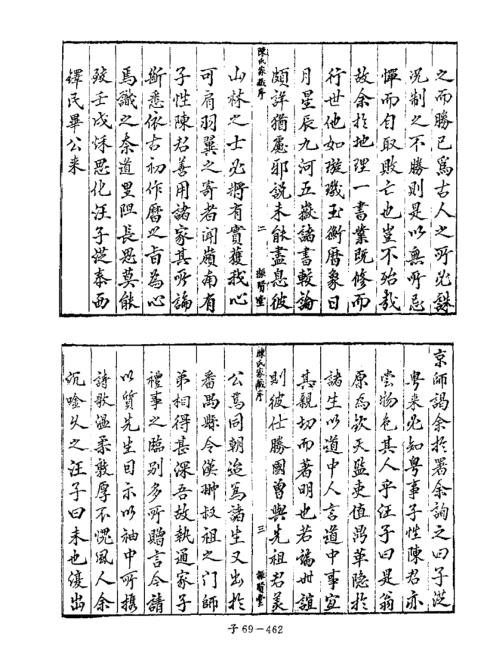 之而勝已爲古人之所必誅
況制之不勝則是以無所忌
憚而自取敗亡也豈不殆哉
故余於地理一書業既修而
行世他如璇璣玉衡曆象日
月星辰九河五嶽諸書較論
頗詳猶慮邪說未能盡息彼
陳氏家藏序
二
山林之士必將有實獲我心
可肩羽翼之寄者聞嶺南有
子性陳君善用諸家其所論
斷悉依古初作曆之旨爲心
焉識之奈道里阻長思莫能
致壬戌秋思化汪子從泰西
鐸民畢公來
京師謁余於署余詢之曰子從
粵來必知粵事子性陳君亦
嘗物色其人乎汪子曰是翁
原爲欽天監吏值鼎革隱於
諸生以道中人言道中事宜
其親切而著明也若論世誼
則彼仕勝國曾與先祖君美
陳氏家藏序
三
公爲同朝迨爲諸生又出於
番禺縣令漢翀叔祖之門師
弟相得甚深吾故執通家子
禮事之臨別多所贈言今請
以質先生目示以袖中所攜
詩歌溫柔敦厚不愧風人余
沉唫久之汪子曰未也復出
子69－462